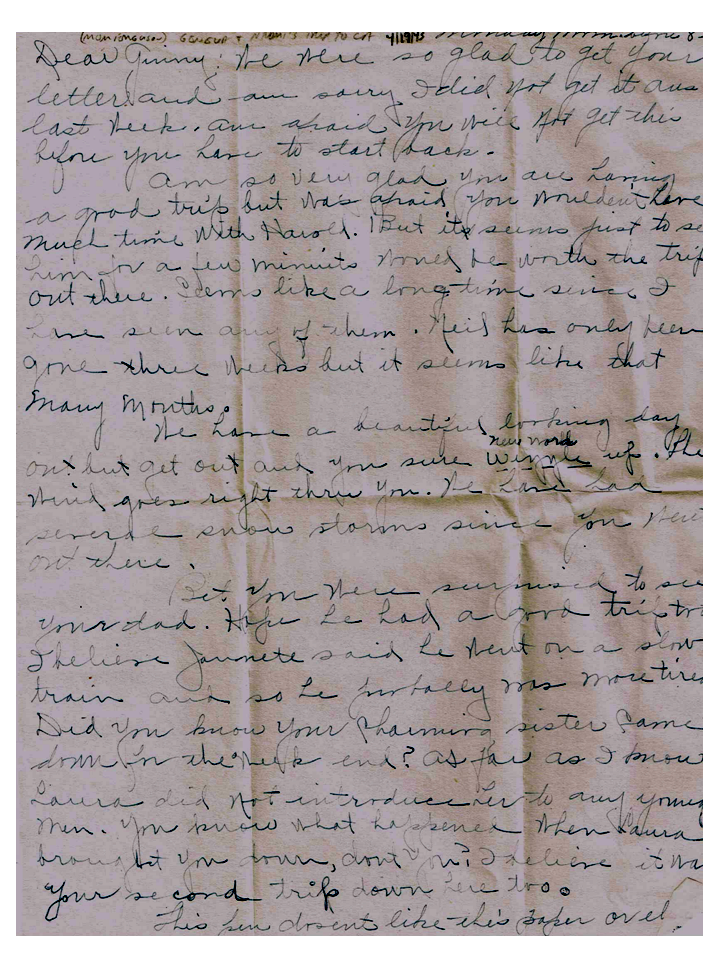 (Mom Ferguson) Geneva & Naomi's trip to CA 4/19/43 Monday
Dear Ginny: We were so glad to get your
letter and am sorry I did not get it ans
last week. am afraid you will not get this
before you have to start back.
Am so very glad you are having
a good trip but was afraid you wouldent have
much time with Harold. But it seems just to se
him for a few minuits would be worth the trip
out there. Seems like a long time since I
have seen any of them. Neil has only been
gone three weeks but it seems like that
many months.
We have a beautiful looking day
new word
out but get out and you sure up. The
wind goes right thru you. We have had
several snow storms since you went
out there.
Bet you were surprised to see
your dad. Hope he had a good trip
I believe Jannete said he went on a slow
train and so he probally was more tired
Did you know your charming sister came
down for the week end? As far as I know
Laura did not introduce her to any young
men. You know what happened when Laura
brought you down, dont you? I believe it wa
your second trip down here too.
This pen dosent like this paper